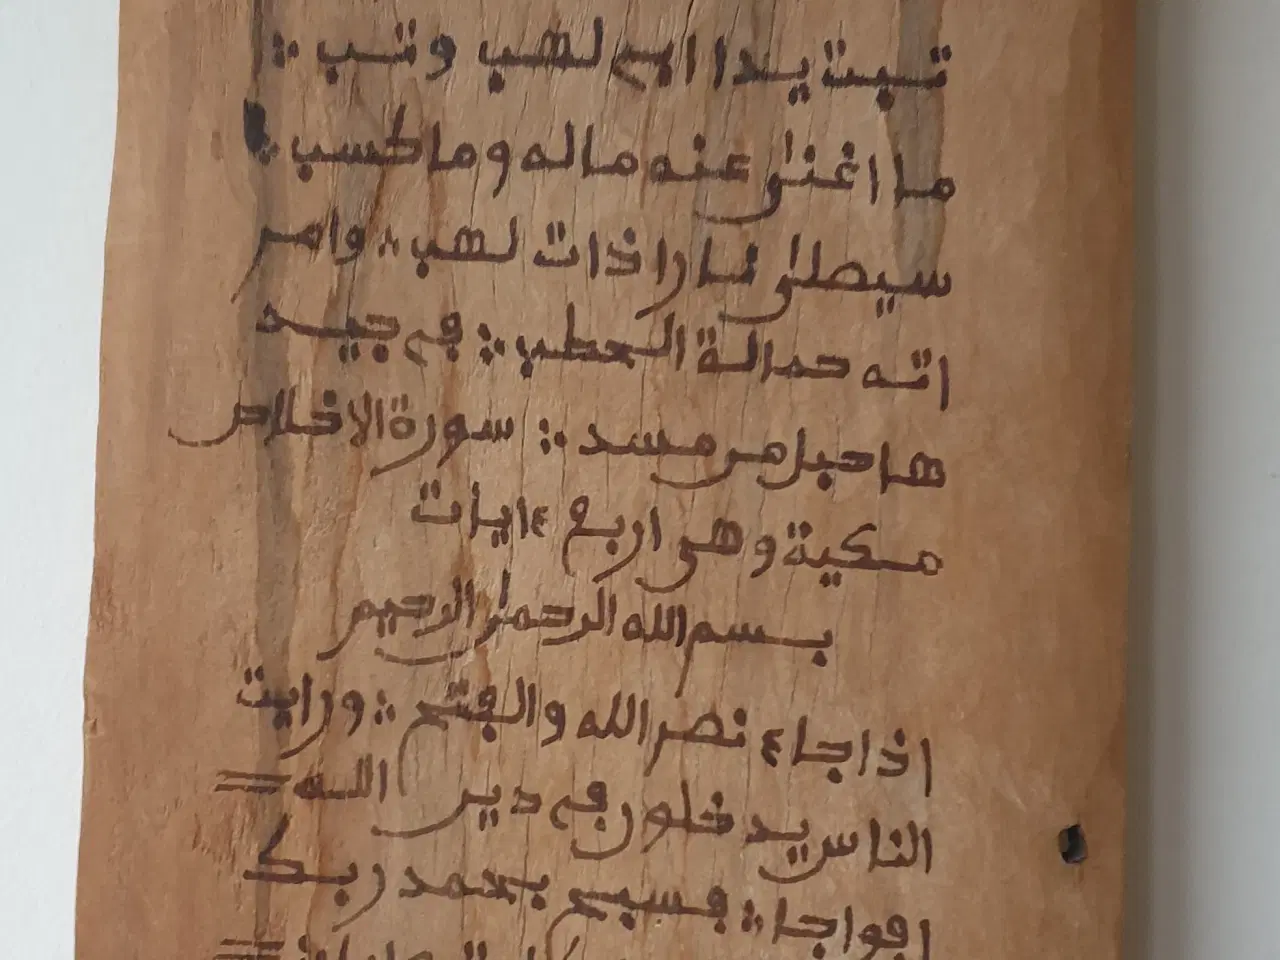 تبت يدا ابے لهب وتب ∴
ما اغنى عنه ماله وما كسب ∴
سيصلى نارا ذات لهب ∴ وامر
اته حمالة الحطب ∴ في جيد
ها حبل من مسد ∴ سورة الاخلاص
مكية وهى اربع ءايات
بسم الله الرحمن الرحيم
اذا جاء نصر الله والفتح ∴ ورايت
الناس يدخلون في دين الله
افواجا ∴ فسبح بحمد ربك